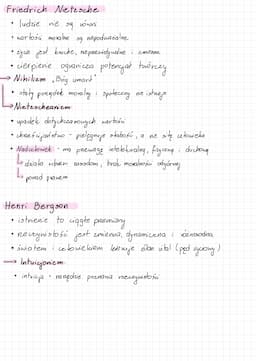 Friedrich Netzsche
• ludzie nie są równi
• wartości moralne są niepodważalne
• życie jest kruche, nieprzewidywalne i zmienne
• cierpienie ogranicza potencjał twórczy
→ Nihilizm „Bóg umarł"
• stały porządek moralny i społeczny nie istnieje
→ Nietzscheanizm
• upadek dotychczasowych wartości
• chrześcijaństwo - pielęgnuje słabość, a nie siłę człowieka
• Nadczłowiek - ma przewagę intelektualną, fizyczną i duchową
↳ działa wbrew zasadom, brak moralności
↳ ponad prawem
Henri Bergson
• istnienie to ciągłe przemiany
• rzeczywistość jest zmienna, dynamiczna i różnorodna
• światem i człowiekiem kieruje élan vital (pęd życiowy)
→ Intuicjonizm
• intuicja - narzędzie poznania rzeczywistości